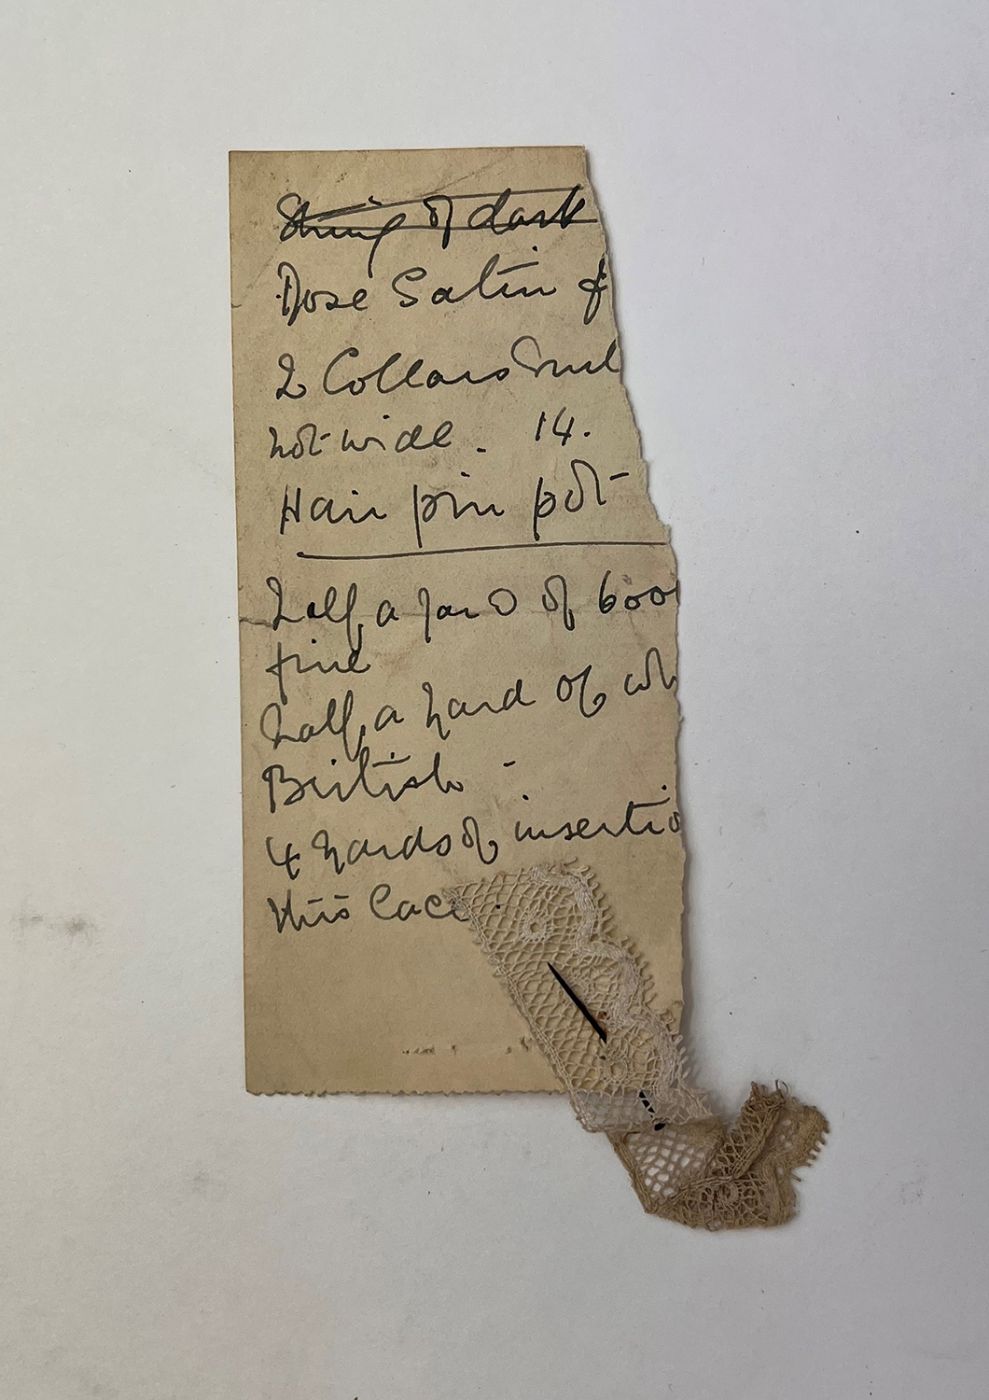 String of dark
Rose Satin &
2 Collars
not wide. 14.
Hair pin pot
Half a yard of
fine
half a yard of wh
British -
4 yards of insertio
this lace.